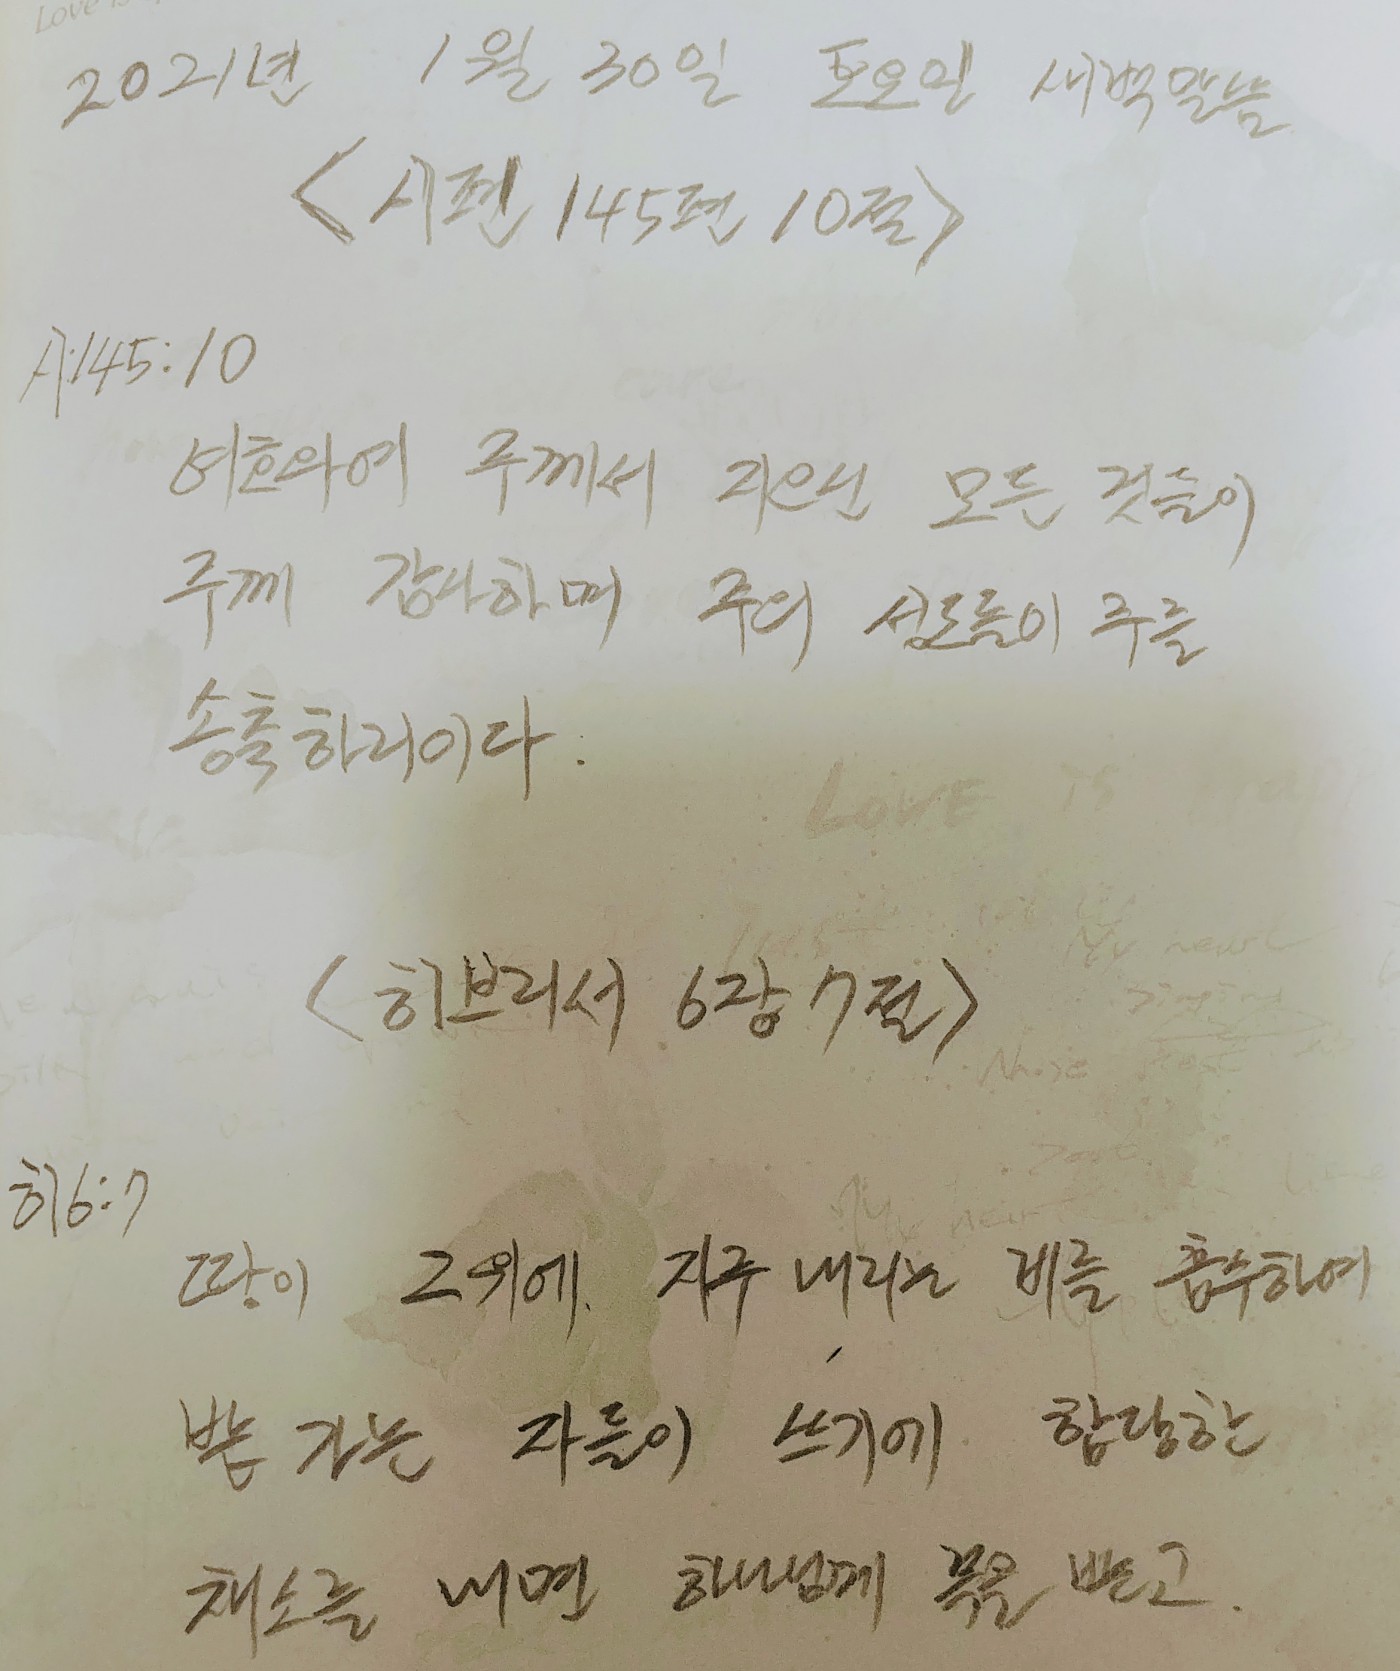 Love is
2021년 1월 30일 토요일 새벽말씀
<시편 145편 10절>
시145:10
여호와여 주께서 지으신 모든 것들이
주께 감사하며 주의 성도들이 주를
송축하리이다.
LOVE IS
<히브리서 6장 7절>
히6:7
땅이 그 위에 자주 내리는 비를 흡수하여
밭 가는 자들이 쓰기에 합당한
채소를 내면 하나님께 복을 받고.